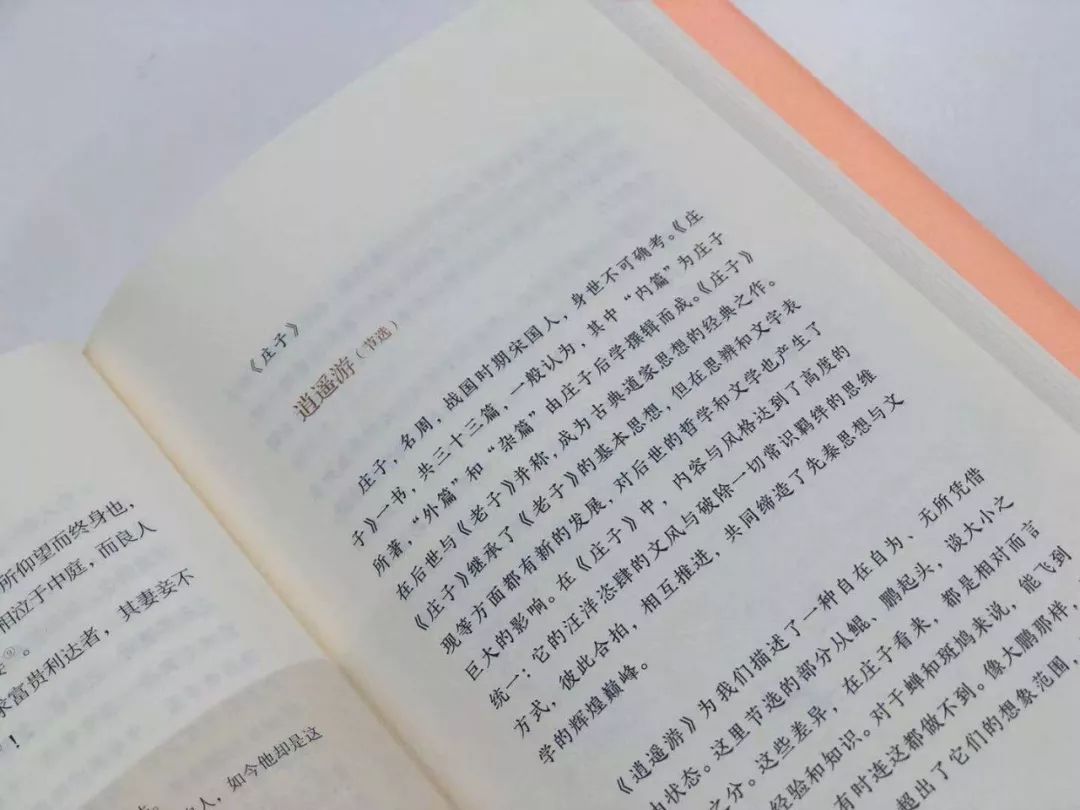 所仰望而终身也,
相泣于中庭,而良人
,其妻妾不
求富贵利达者
!
,如今他却是这
《庄子》
逍遥游(节选)
庄子,名周,战国时期宋国人,身世不可确考。《庄
子》一书,共三十三篇,一般认为,其中“内篇”为庄子
所著,“外篇”和“杂篇”由庄子后学撰辑而成。《庄子》
在后世与《老子》并称,成为古典道家思想的经典之作。
《庄子》继承了《老子》的基本思想,但在思辨和文字表
现等方面都有新的发展,对后世的哲学和文学也产生了
巨大的影响。在《庄子》中,内容与风格达到了高度的
统一:它的汪洋恣肆的文风与破除一切常识羁绊的思维
方式,彼此合拍,相互推进,共同缔造了先秦思想与文
学的辉煌巅峰。
《逍遥游》为我们描述了一种自在自为、无所凭借
状态。这里节选的部分从鲲、鹏起头,谈大小之
之分。这些差异,在庄子看来,都是相对而言
经验和知识。对于蝉和斑鸠来说,能飞到
有时连这都做不到。像大鹏那样,
超出了它们的想象范围,